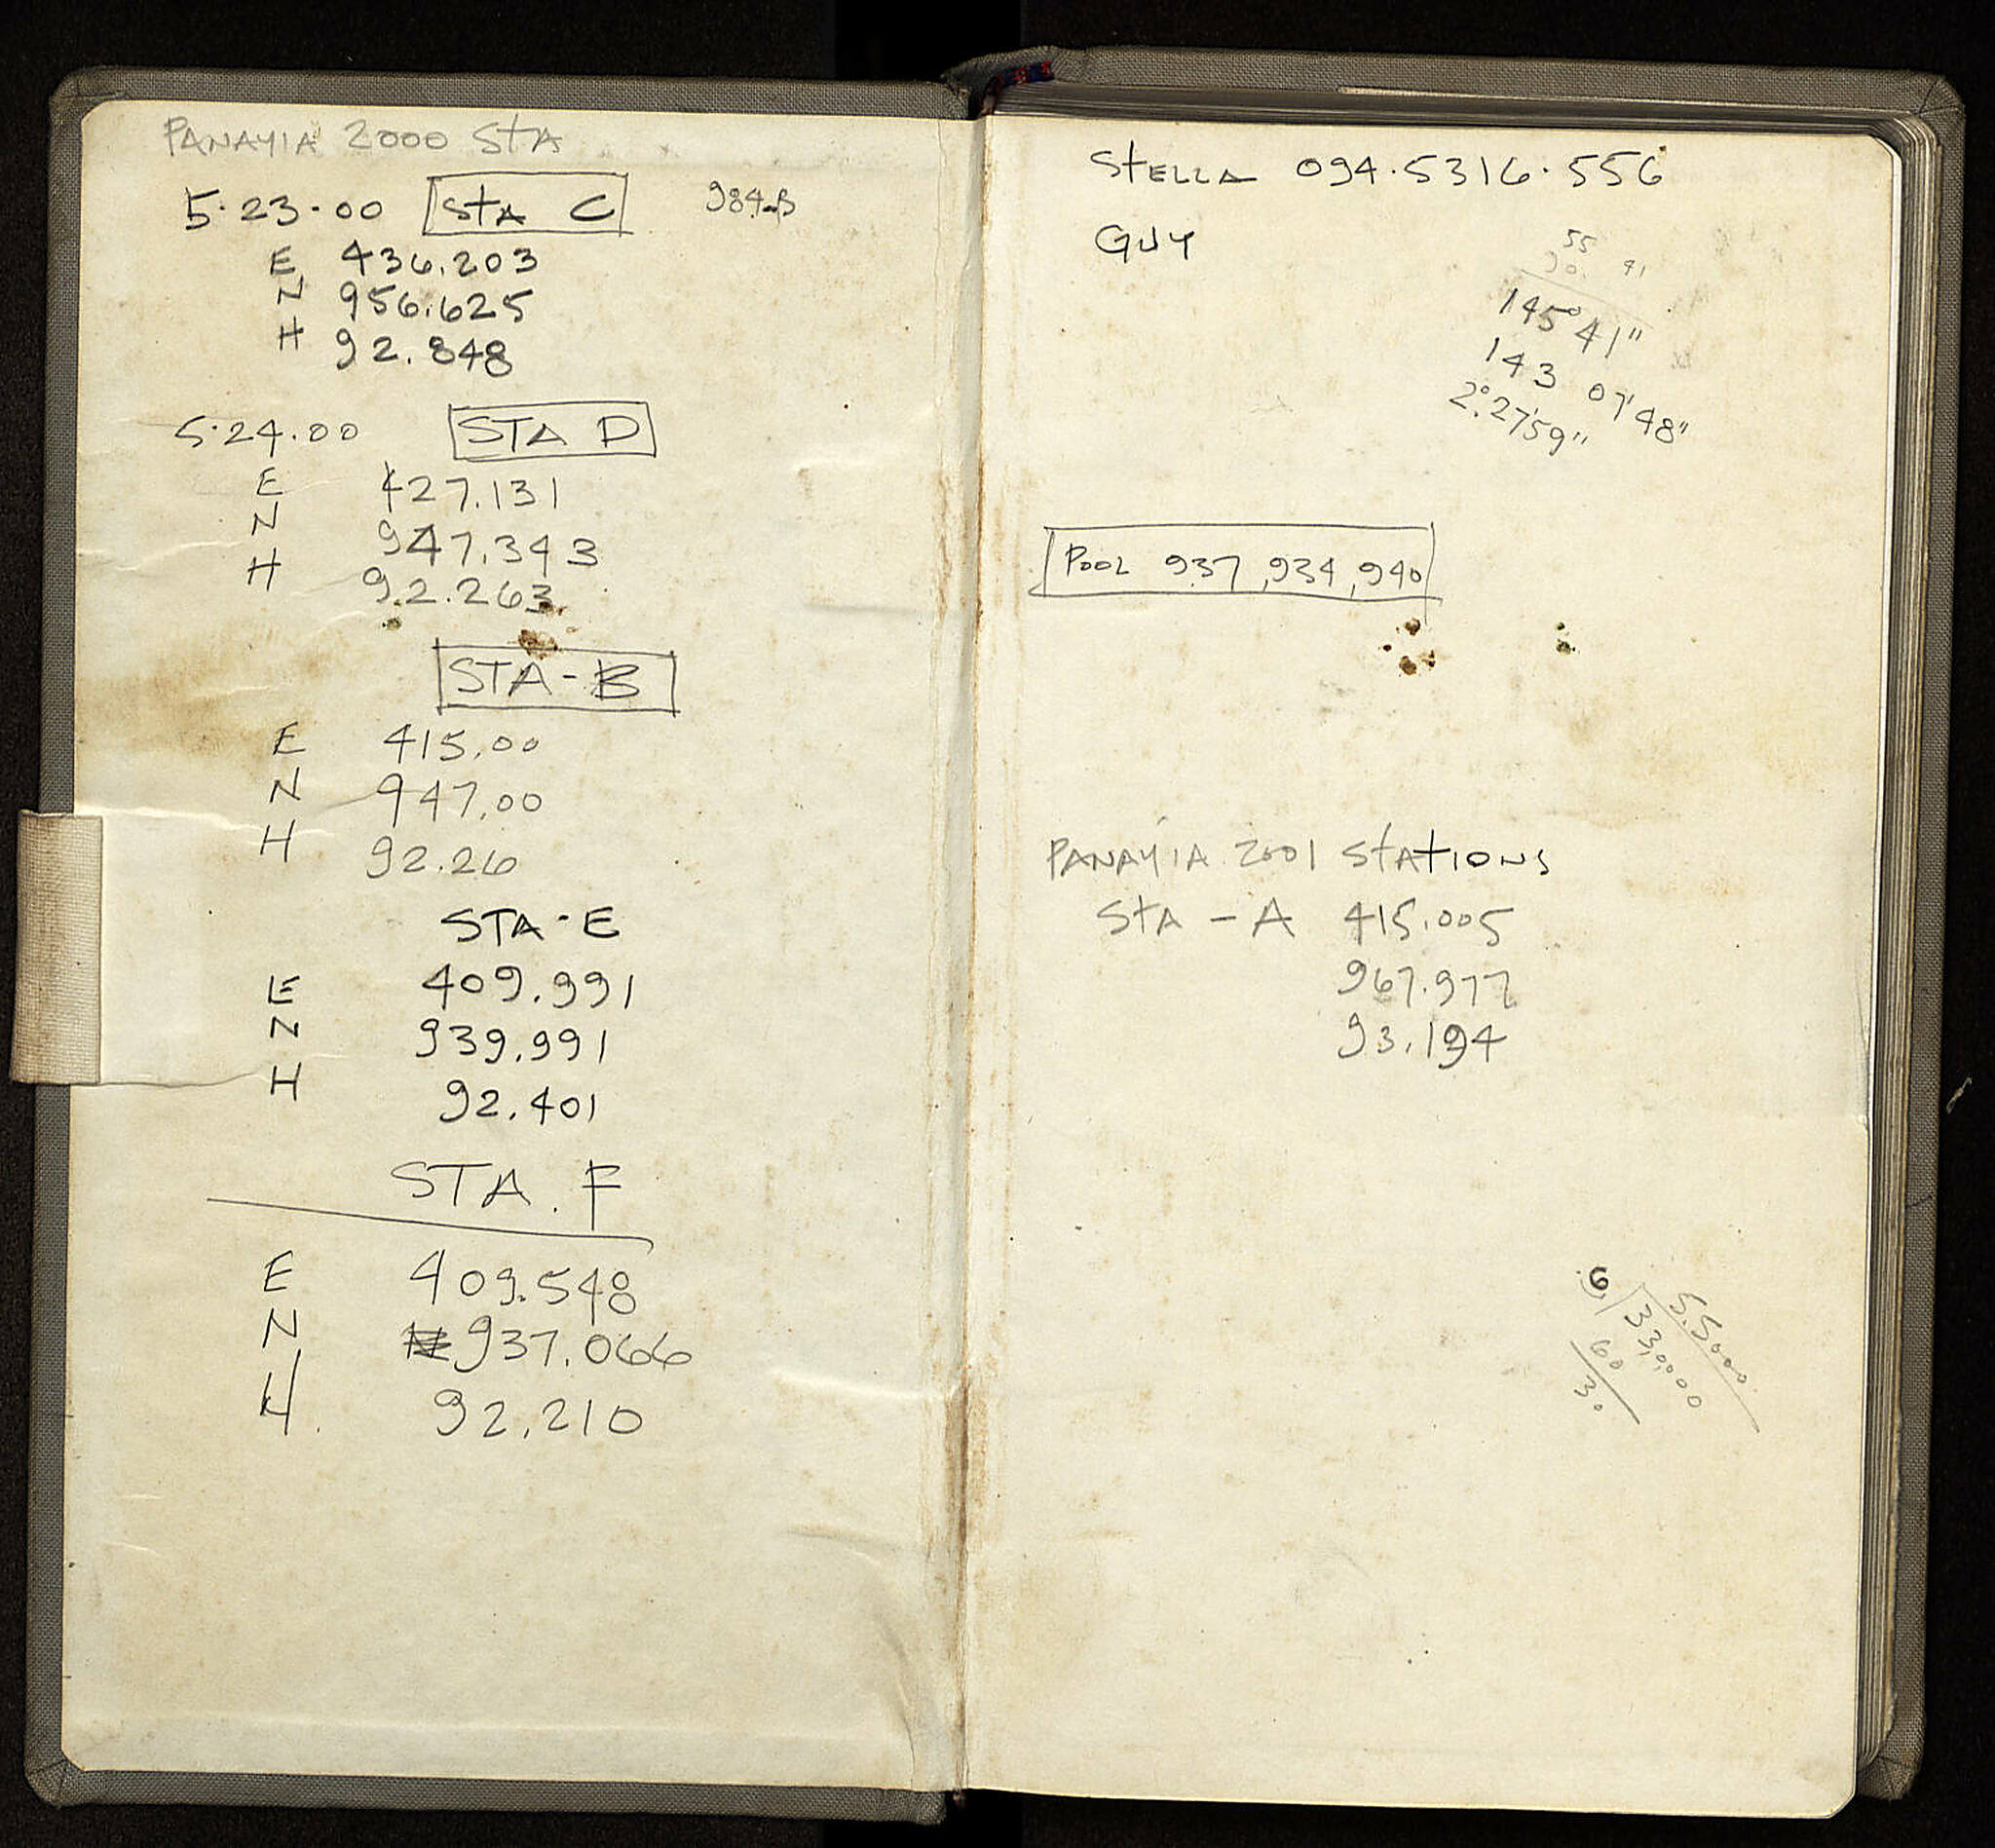 PANAYIA 2000 STA
5·23·00 STA C
E 436.203
N 956.625
H 92.848
5·24·00 STA D
E 427.131
N 947.343
H 92.263
STA-B
E 415.00
N 947.00
H 92.26
STA-E
E 409.991
N 939.991
H 92.401
STA. F
E 409.548
N 937.066
H. 92.210
STELLA 094.5316.556
GUY
55 41
90.
145° 41"
143 07' 48"
2° 27' 59"
POOL 937, 934, 940
PANAYIA 2001 STATIONS
STA - A 415.005
967.977
93.194
5.5000
6 33,0000
60
30